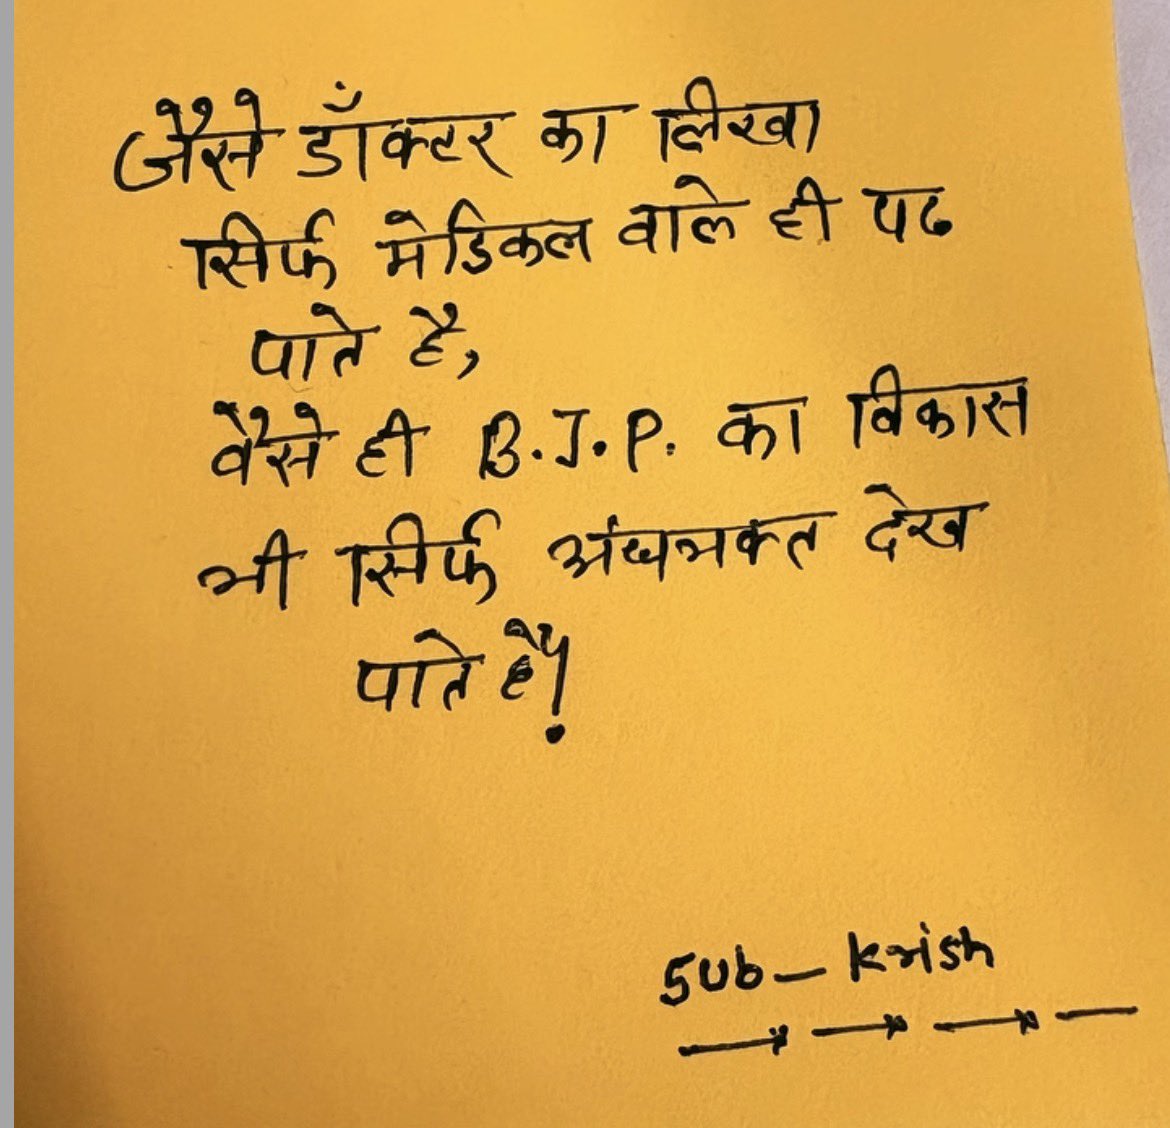 जैसे डॉक्टर का लिखा
सिर्फ मेडिकल वाले ही पढ
पाते है,
वैसे ही B.J.P. का विकास
भी सिर्फ अंधभक्त देख
पाते है!
Sub - Krish